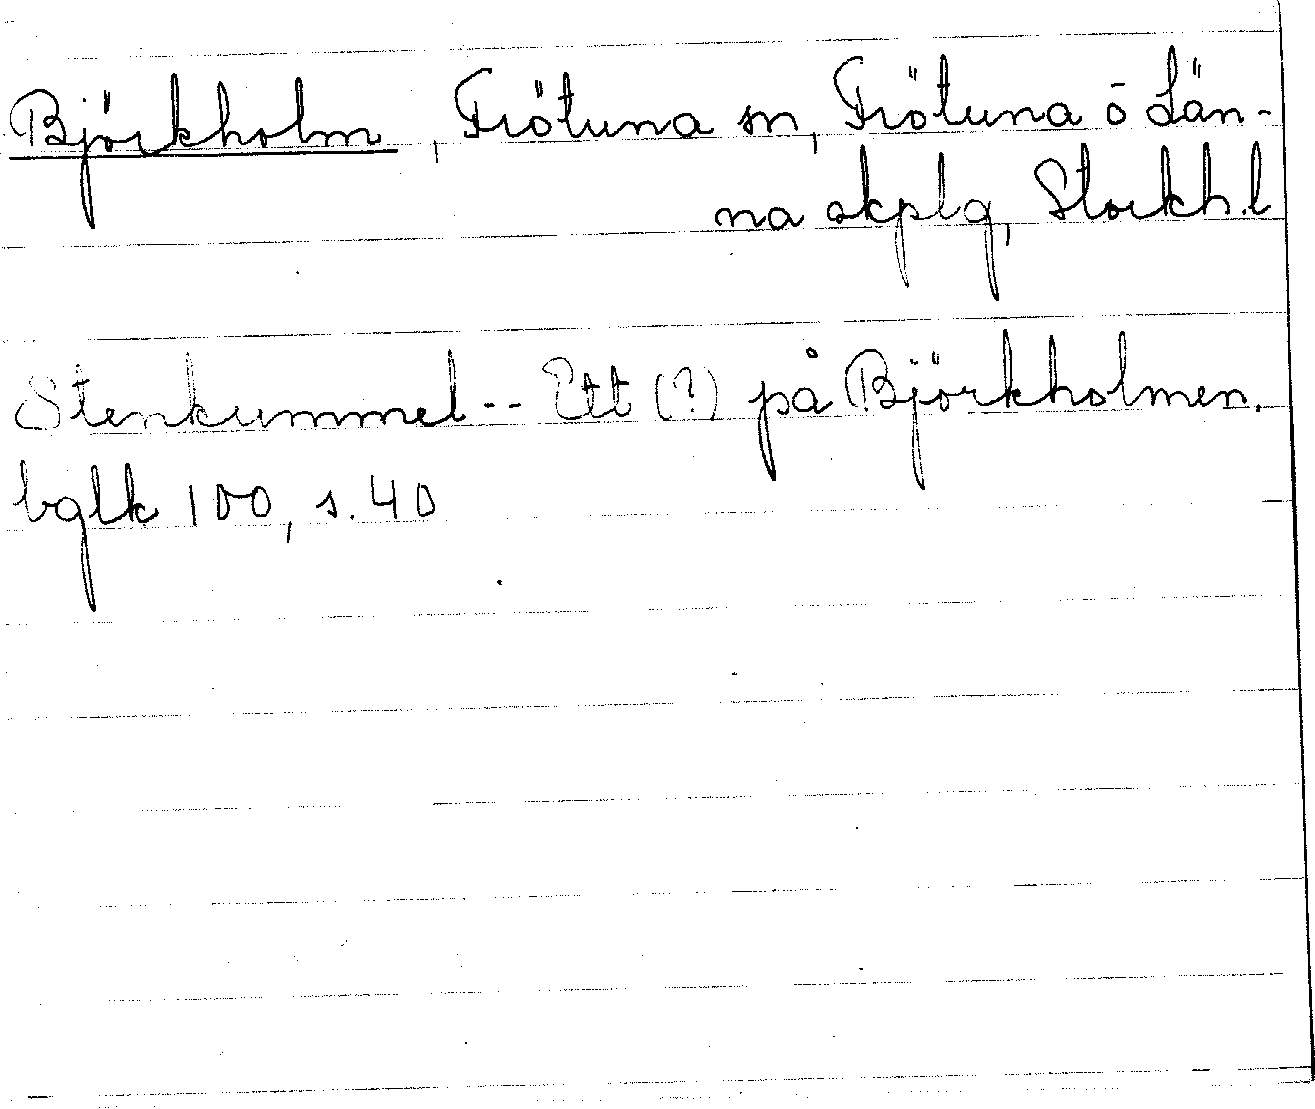 Björkholm, Frötuna sn, Frötuna o Län-
na skplg, Stockh.l
Stenkummel -- Ett (?) på Björkholmen.
bglk 100, s. 40